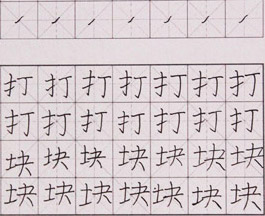 打打打打打打打
打打打打打打打
块块块块块块块
块块块块块块块